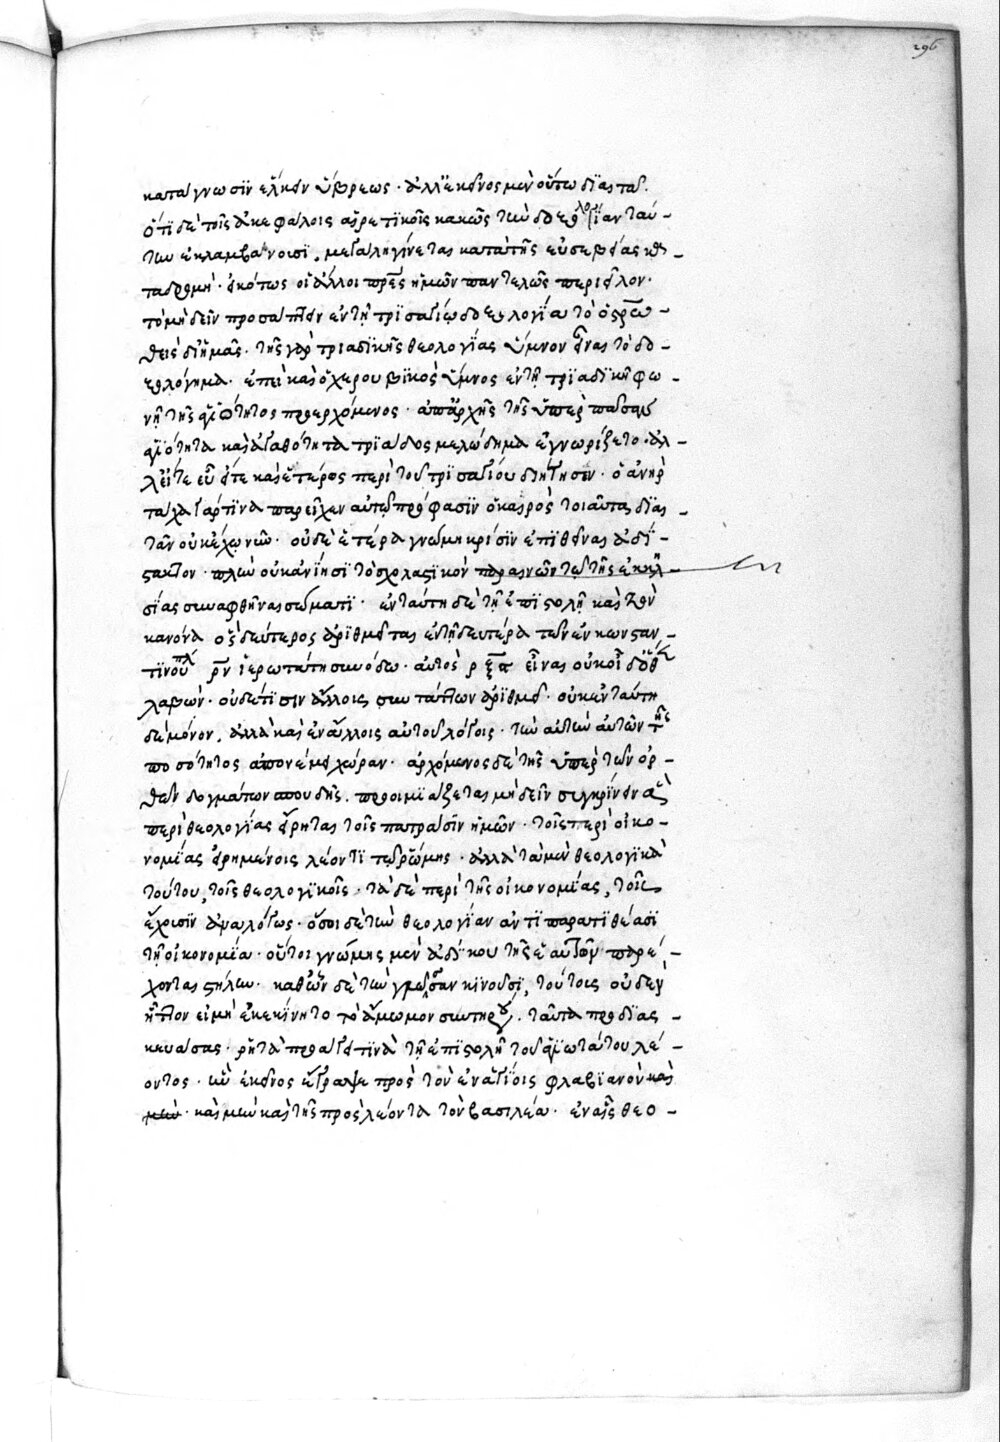 296
κατάγνωσϊν εἷλκεν ὕβρεως· ἀλλ' ἐκεῖνος μὲν οὕτω δϊαιτᾶ.
ὅτϊ δὲ τοῖς ἀκεφάλοις αἱρετϊκοῖς κακῶς τὴν δοξολογίαν ταύ-
την ἐκλαμβάνουσϊ, μεταλη γίνεται κατὰ τῆς εὐσεβείας κα
ταδρομή· εἰκότως οἱ ἄλλοι πρὲς ἡμῶν παντελῶς περιεῖλον·
τὸ μὴ δεῖν προσάπτειν ἐν τῇ τρϊσαγίῳ δοξολογία τὸ ὁ σρω-
θεὶς δι' ἡμᾶς· τῆς γὰρ τριαδϊκῆς θεολογίας ὕμνον εἶναι τὸ δο-
ξολόγημα· ἐπεὶ καὶ ὁ χερουβϊκὸς ὕμνος ἐν τῇ τρϊαδϊκῇ φω-
νῇ τῆς ἁγιότητος προερχόμενος· ἀπ' ἀρχῆς τῆς ὑπὲρ πᾶσαν
ἁγιότητα καὶ ἀγαθότητα τρϊάδος μελώδημα ἐγνωρίζετο· ἀλ-
λ' εἴτε εὖ εἴτε καὶ ἑτέρως περὶ τοῦ τρϊσαγίου διήτησεν· ὁ ἀνὴρ
τάχα γάρ τϊνα παρεῖχεν αὐτῷ πρόφασϊν ὁ καιρὸς τοιαῦτα δϊαι-
τᾶν οὐκ ἔχω νῶϊ· οὐδὲ ἑτέρα γνώμη κρίσϊν ἐπϊθεῖναι ἀδί-
στακτον· πλὴν οὐκ ἀνίησι τὸ σχολαστϊκὸν παραινῶν τῷ τῆς ἐκκλη-
σίας συναφθῆναι σώματϊ· ἐν ταύτῃ δὲ τῇ ἐπϊστολῇ καὶ τὸν
κανόνα ὃς δεύτερος ἀρϊθμεῖται ἐν τῇ δευτέρα τῶν ἐν κωνσταν-
τϊνουπλ ρν ἱερωτάτη συνόδω· αὐτὸς ρξπ εἶναι οὐκ οἶδ' ὅθεν
λαβὼν· οὐδέ τϊσιν ἄλλοις συντάττων ἀρϊθμεῖ· οὐκ ἐν ταύτη
δὲ μόνον, ἀλλὰ καὶ ἐν ἄλλοις αὐτοῦ λόγοις· τὴν αὐτὴν αὐτῶν τῆς
ποσότητος ἀπονέμει χώραν· ἀρχόμενος δὲ τῆς ὑπὲρ τῶν ὀρ-
θῶν δογμάτων σπουδῆς, προοιμϊάζεται μὴ δεῖν συγκρίνειν ἃ
περὶ θεολογίας εἴρηται τοῖς πατράσϊν ἡμῶν· τοῖς περὶ οἰκο-
νομϊας εἰρημένοις λέοντϊ τῷ ῥώμης· ἀλλὰ τὰ μὲν θεολογϊκὰ
τούτου, τοῖς θεολογϊκοῖς· τὰ δὲ περὶ τῆς οἰκονομίας, τοῖς
ἔχουσϊν ἀναλόγως· ὅσοι δὲ τὴν θεολογίαν ἀντϊπαρατϊθέασϊ
τῇ οἰκονομία· οὗτοι γνώμης μὲν ἀδίκου τῆς ἑαυτῶν παρέ-
χονται στήλην· καθ' ὧν δὲ τὴν γλῶσσαν κϊνοῦσϊ, τούτοις οὐδὲν
ἧττον εἰ μὴ ἐκεκίνητο τὸ ἄμωμον συντηροῦ. ταῦτα προδϊας-
κευάσας· ῥητὰ προάγει τϊνὰ τῇ ἐπϊστολῇ τοῦ ἁγϊωτάτου λέ-
οντος· ἣν ἐκεῖνος ἔγραψε πρὸς τὸν ἐν ἁγίοις φλαβϊανὸν καὶ
μὴν· καὶ μὴν καὶ τῆς πρὸς λέοντα τὸν βασιλέα· ἐν αἷς θεο-